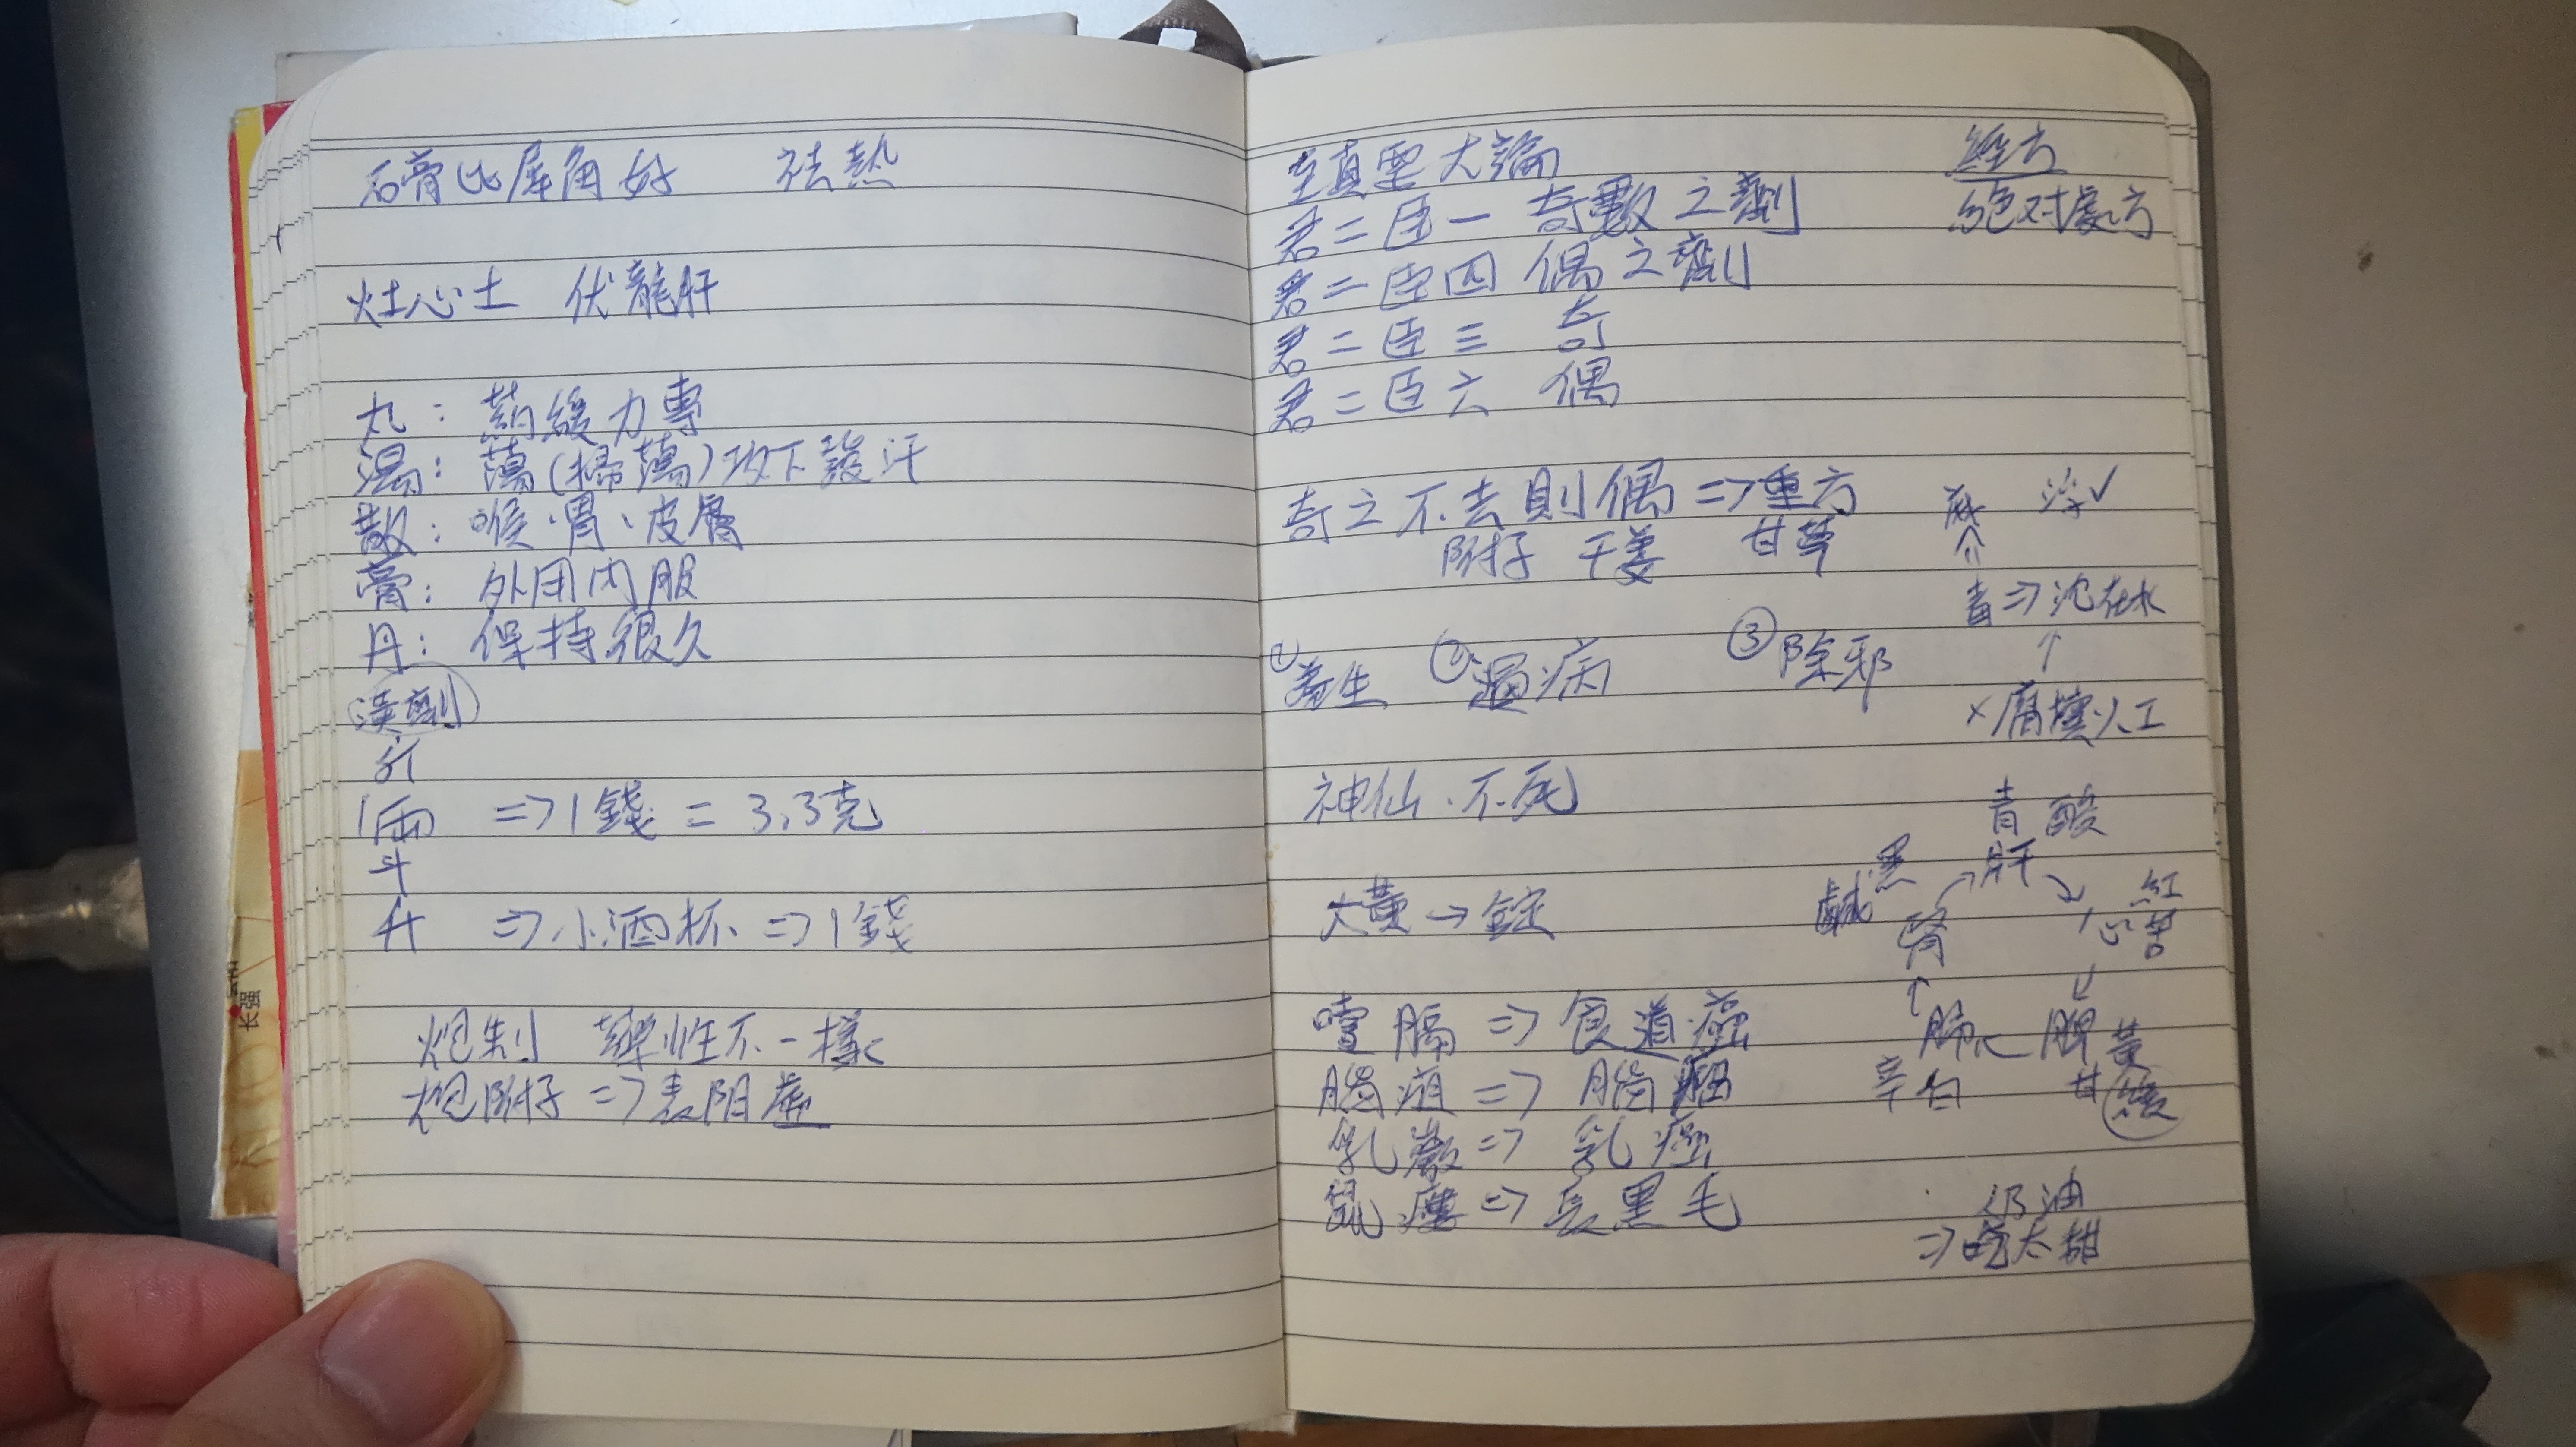 石膏比犀角好 祛熱
灶心土 伏龍肝
丸: 葯緩力專
湯: 蕩(掃蕩)攻下發汗
散: 喉、胃、皮膚
膏: 外用内服
丹: 保持很久
漢劑
斤
1両 => 1錢 = 3.3克
斗
升 => 小酒杯 => 1錢
炮制 葯性不一樣
炮附子 => 表阳虚
至真要大論
君二臣一 奇數之劑
君二臣四 偶之劑
君二臣三 奇
君二臣六 偶
奇之不去則偶 => 重方
附子 干姜 甘草
① 養生 ② 遏病 ③ 除邪
神仙、不死
大黃 → 錠
噎膈 => 食道癌
腦疽 => 腦瘤
乳巖 => 乳癌
鼠瘻 => 長黑毛
經方
絕对處方
浮✓
青 => 沈在水
↑
×腐壞人工
青 酸
肝
黑
鹹
腎
紅
心 苦
肺 ← 脾 黃
辛 白 甘 緩
奶油
=> 吃太甜
长强